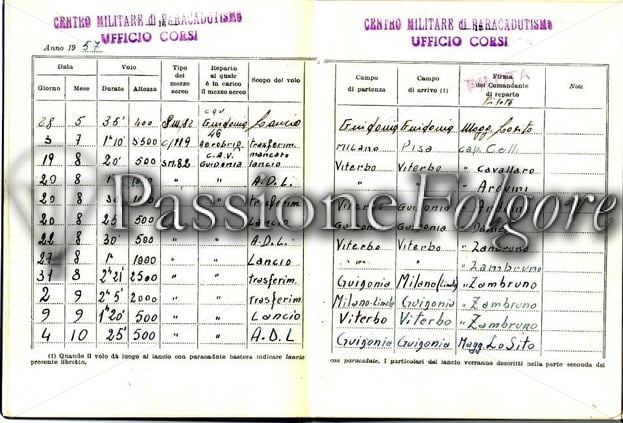 CENTRO MILITARE di PARACADUTISMO
UFFICIO CORSI
Anno 19 57
Data Volo Tipo del mezzo aereo Reparto al quale è in carico il mezzo aereo Scopo del volo
Giorno Mese Durata Altezza
28 5 35' 400 S.M.82 Guidonia Lancio
3 7 1h 10' 5500 C/119 46 aerobrig. trasferim.
19 8 20' 500 SM.82 C.A.V. Guidonia mancato lancio
20 8 A.D.L.
20 8 trasferim.
20 8 25' 500 Lancio
22 8 30' 500 " " A.D.L.
27 8 1h 1000 " " Lancio
31 8 2h 21' 2500 " " trasferim.
2 9 2h 5' 2000 " " trasferim.
9 9 1h 20' 500 " " Lancio
4 10 25' 500 " " A.D.L
(1) Quando il volo dà luogo al lancio con paracadute basterà indicare lancio
presente libretto.
CENTRO MILITARE di PARACADUTISMO
UFFICIO CORSI
Campo di partenza Campo di arrivo (1) Firma del Comandante di reparto Note
Pilota
Guidonia Guidonia Magg. Losito
Milano Pisa cap. Celli
Viterbo Viterbo " Cavallaro
" " " Arduini
Guidonia
Viterbo Viterbo " Zambruno
" Zambruno
Guidonia Milano (Linate) " Zambruno
Milano-Linate Guidonia " Zambruno
Viterbo Viterbo " Zambruno
Guidonia Guidonia Magg. LoSito
con paracadute. I particolari del lancio verranno descritti nella parte seconda del
PassioneFolgore